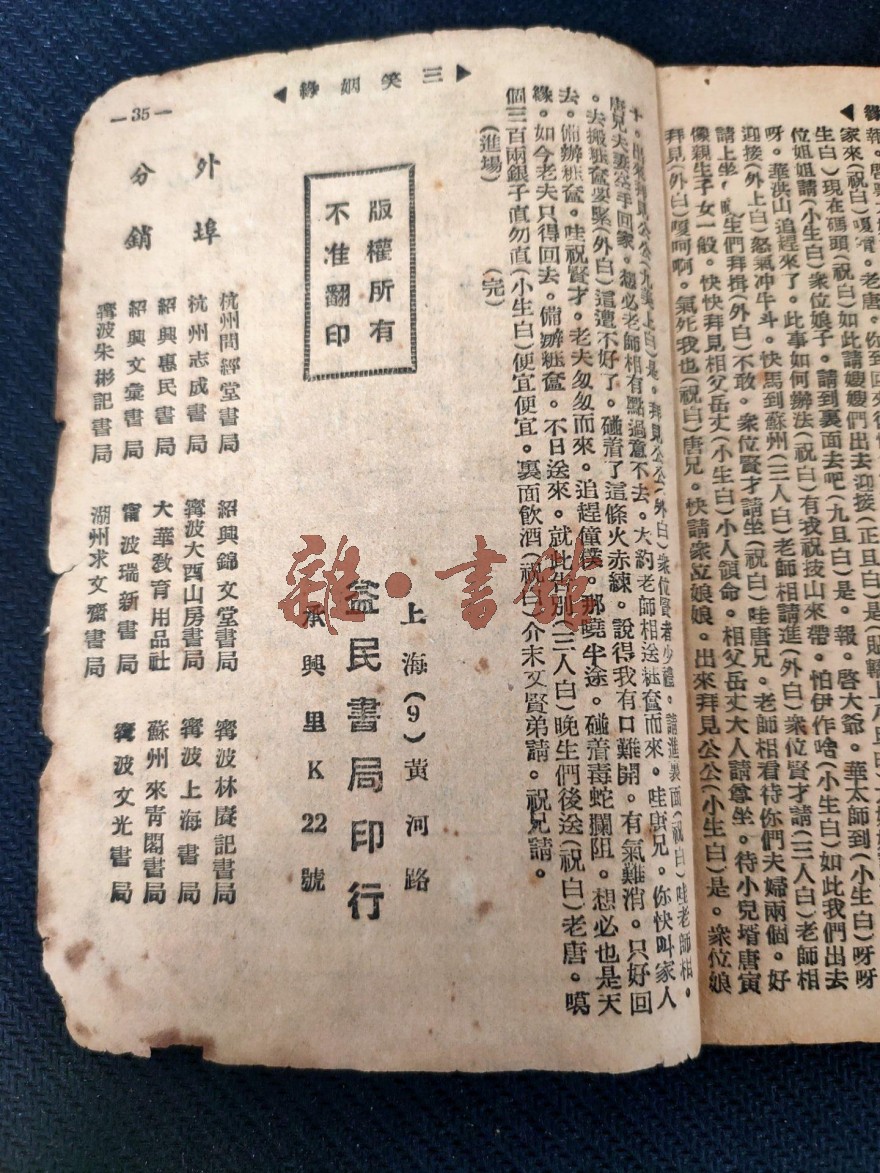 報。唐
家來(祝白)嗄唷。老唐。你到回來得
生白)現在碼頭(祝白)如此請嫂嫂們出去迎接(正旦白)是
位姐姐請(小生白)衆位娘子。請到裏面去吧(九旦白)是。報。啓大爺。華太師到(小生白)呀呀
呀。華洪山追趕來了。此事如何辦法(祝白)有我祝技山來帶。怕伊作啥(小生白)如此我們出去
迎接(外上白)怒氣冲牛斗。快馬到蘇州(三人白)老師相請進(外白)衆位賢才請(三人白)老師相
請上坐。生們拜揖(外白)不敢。衆位賢才請坐(祝白)哇唐兄。老師相看待你們夫婦兩個。好
像親生子女一般。快快拜見相父岳丈(小生白)小人領命。相父岳丈大人請尊坐。待小兒壻唐寅
拜見(外白)嗄呵啊。氣死我也(祝白)唐兄。快請衆位娘娘。出來拜見公公(小生白)是。衆位娘
三笑姻緣
十。出來拜見公公(九旦上白)是。拜見公公(外白)衆位賢者少禮。請進裏面(祝白)哇老師相。
唐兄夫妻空手回家。想必老師相有點過意不去。大約老師相送粧奩而來。哇唐兄。你快叫家人
。去搬粧奩要緊(外白)這遭不好了。碰着了這條火赤練。說得我有口難開。有氣難消。只好回
去。備辦粧奩。哇祝賢才。老夫匆匆而來。追趕僮僕。那曉半途。碰着毒蛇攔阻。想必也是天
緣。如今老夫只得回去。備辦粧奩。不日送來。就此告別(三人白)晚生們後送(祝白)老唐。噶
個三百兩銀子直勿直(小生白)便宜便宜。裏面飲酒(祝白)介末文賢弟請。祝兄請。
(進場) (完)
版權所有
不准翻印
上海(9)黃河路
益民書局印行
承興里K22號
外埠
分銷
杭州問經堂書局 紹興錦文堂書局 寗波林慶記書局
杭州志成書局 寗波大酉山房書局 寗波上海書局
紹興惠民書局 大華敎育用品社 蘇州來靑閣書局
紹興文彙書局 甯波瑞新書局 寗波文光書局
寗波朱彬記書局 湖州求文齋書局
—35—
雜·書館